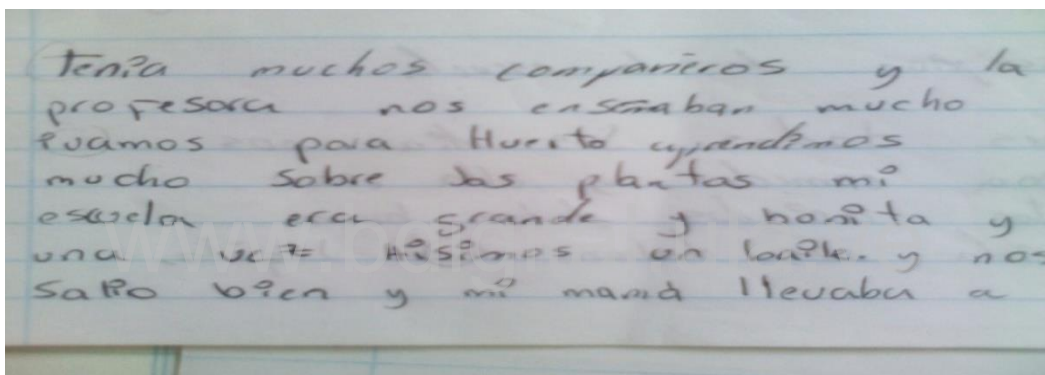 Tenia muchos compañeros y la
profesora nos enseñaban mucho
ivamos para Huerto aprendimos
mucho sobre las plantas mi
escuela era grande y bonita y
una vez Hisimos un baile y nos
salio bien y mi mamá llevaba a